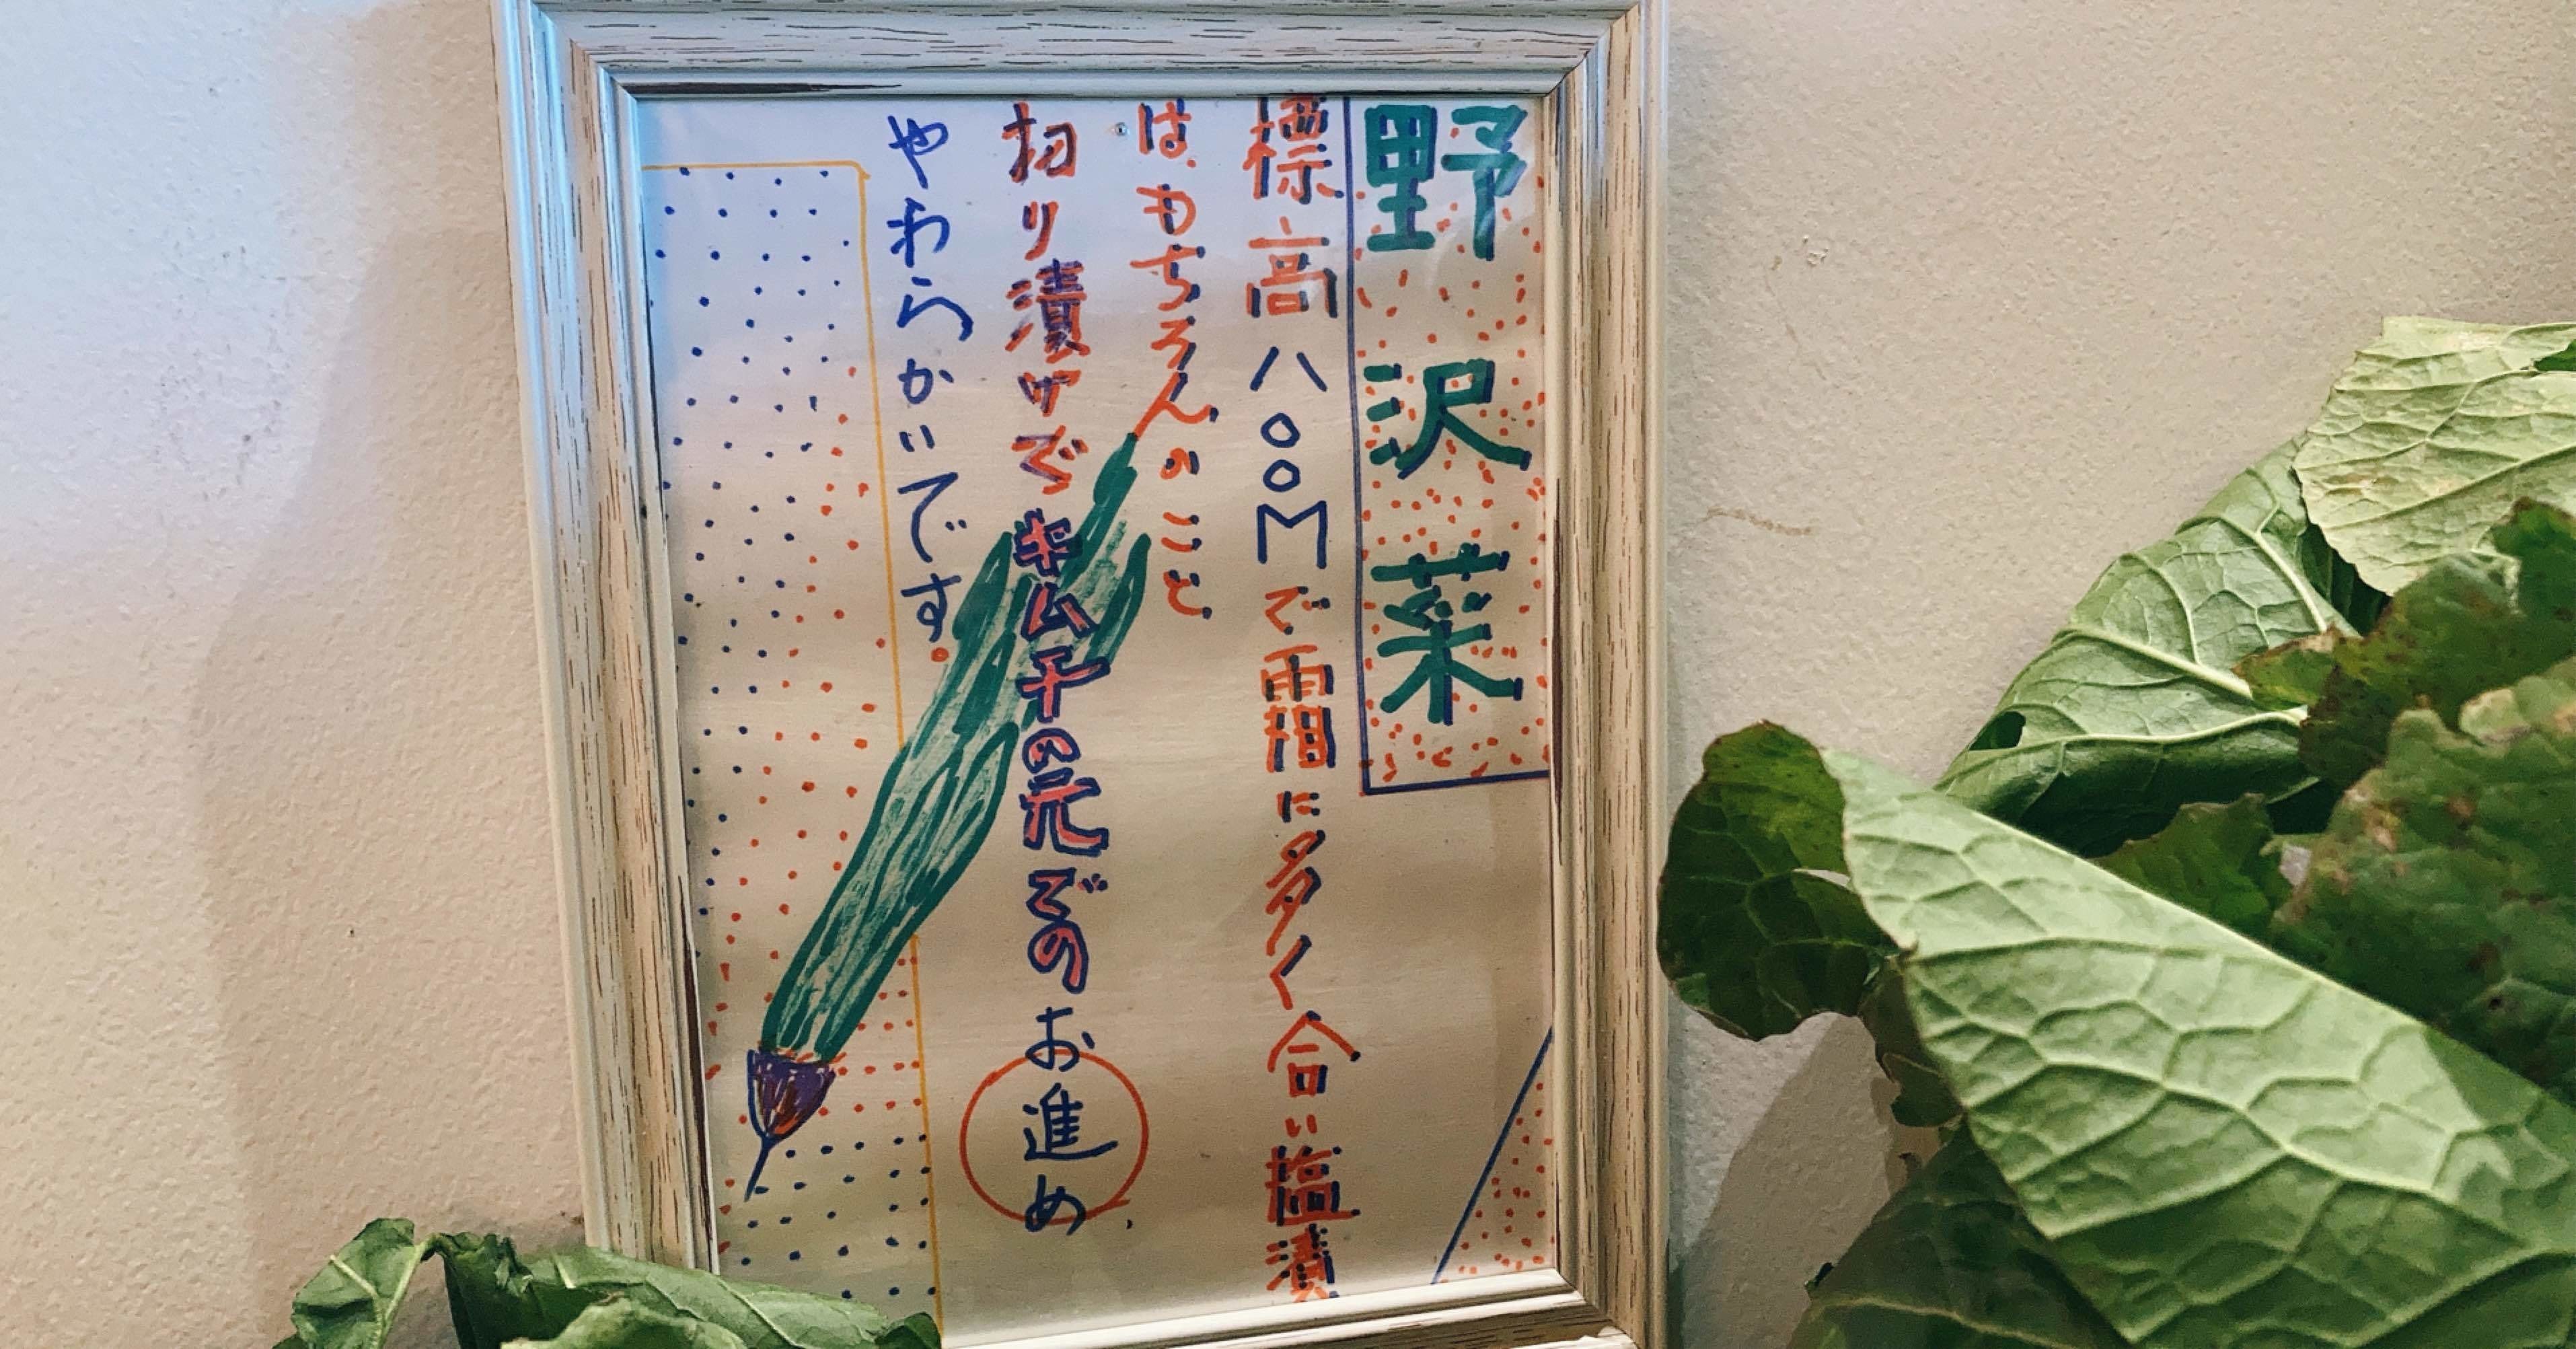 野沢菜
標高八〇〇Mで霜に多く合い塩漬
は、もちろんのこと
切り漬けでキムチの元でのお進め
やわらかいです。